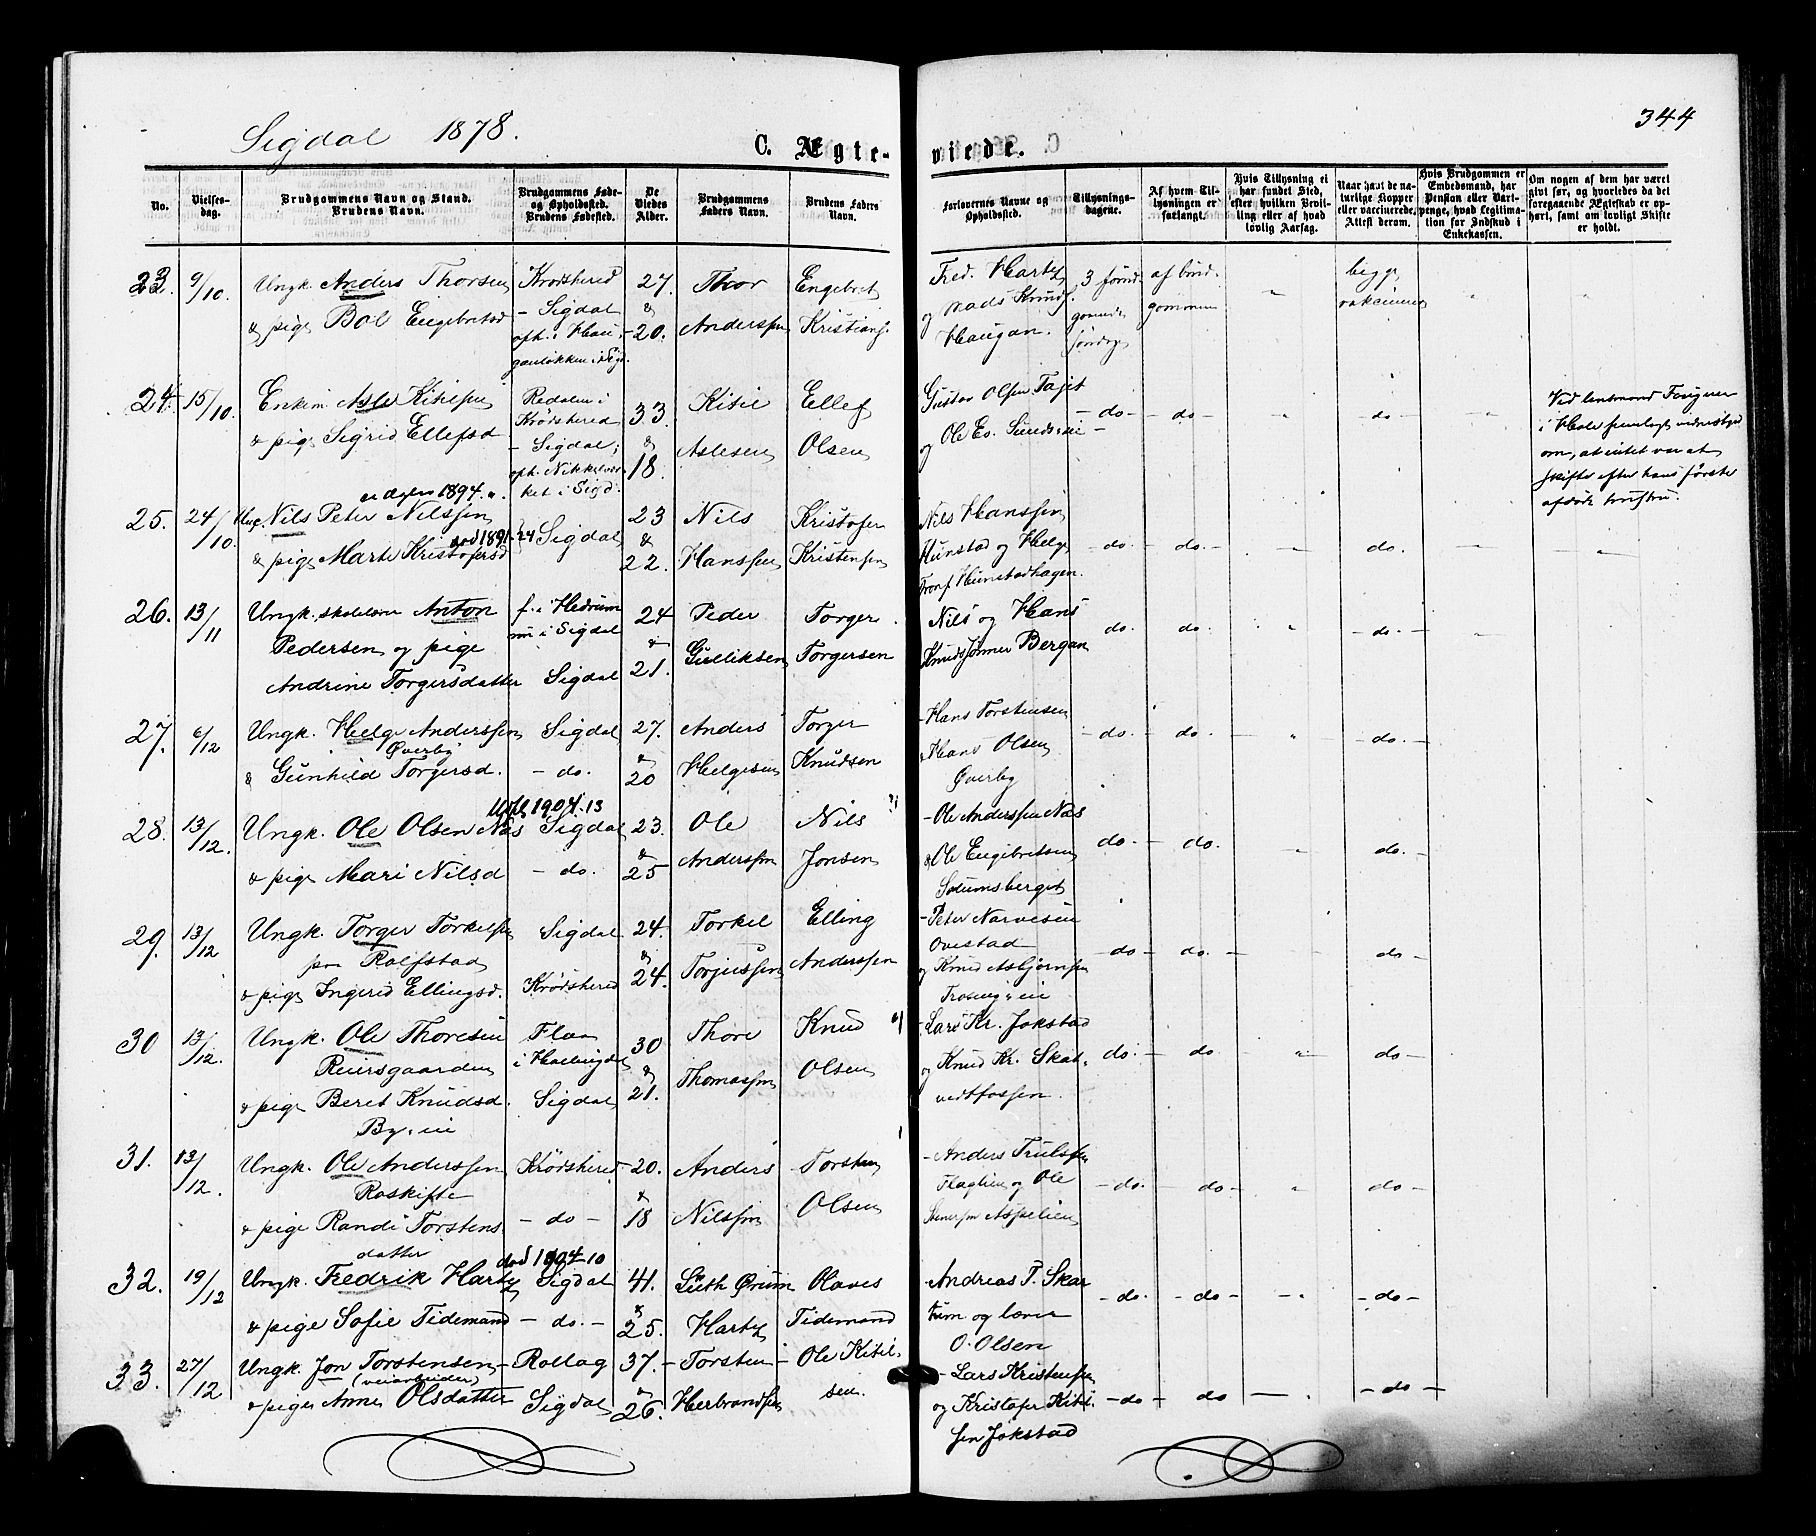 Sigdal 1878.
344
C. Ægte- viede.
No.
Vielses-dag.
Brudgommens Navn og Stand. Brudens Navn.
Brudgommens Føde- og Opholdssted. Brudens Fødested.
De Viedes Alder.
Brudgommens Faders Navn.
Brudens Faders Navn.
Forlovernes Navne og Opholdssted.
Tillysnings-dagene.
Af hvem Til-lysningen er forlangt.
Hvis Tillysning ei har fundet Sted, efter hvilken Bevil-ling eller af hvad lovlig Aarsag.
Naar havt de na-turlige Kopper eller vaccinerede, Attest derom.
Hvis Brudgommen er Embedsmand, har Pension eller Vart-penge, hvad Legitima-tion for Indskud i Enkekassen.
Om nogen af dem har været givt før, og hvorledes da det foregaaende Ægteskab er op-hørt, samt om lovligt Skifte er holdt.
23. 9/10. Ungk. Anders Thorsen Krødshered 27. Thor Engebret Fred. Hartz 3 foreg. af brud-
& pige Bol Engebretsd - Sigdal & 20. Anderssen Kristians. og Mads Knuds. Haugan. søndage gommen begge vakcinerer
oph. i Hau-
ganløkken i Sigd.
24. 15/10. Enkem. Asle Kitilsen Redalen i Krødshered 33 Kitil Ellef Gustav Olsen -do- -do- do-
& pige Sigrid Ellefsd - Sigdal, & 18. Aslesen Olsen og Ole Es. Sundseie
oph. Nikkelver-
ket i Sigd.
Ved lensmand
i Hole fremlagt
om, at intet var at
skifte efter hans første
afdøde hustru.
25. 24/10. Nils Peter Nilssen 1894. 23 Nils Kristofer Nils Hanssen -do- -do- do.
& pige Marte Kristofersd død 1891-24 Sigdal & 22. Hanssen Kristensen Hunstad og Helge
Hunstadhagen.
26. 13/11 Ungk. skolelærer Anton f. i Hedrum 24 Peder Torger Nils og Hans do. do. -do-
Pedersen og pige nu i Sigdal & Gulliksen Torgersen Knudssønner Bergan
Andrine Torgersdatter Sigdal 21.
27. 6/12 Ungk. Helge Anderssen Sigdal 27. Anders Torger - Hans Torstensen -do- -do- -do-
Øverby
& Gunhild Torgersd. - do. & 20 Helgesen Knudsen & Hans Olsen
Øverby
28. 13/12. Ungk. Ole Olsen Næs 1904.13 Sigdal 23. Ole Nils - Ole Anderssen Næs do- do. do.-
& pige Mari Nilsd - do. & 25 Anderssen Jonsen & Ole Engebretsen
Solumsberget
29. 13/12 Ungk. Torger Torkelsen Sigdal 24. Torkel Elling - Peter Narvesen -do- -do. do-
paa Rolfstad Ovestad
& pige Ingerid Ellingsd. Krødshered & 24. Torjussen Anderssen og Knud Asbjørnsen
30 13/12. Ungk. Ole Thoresen Flaa 30 Thore Knud - Lars Kr. Jokstad do.- do do-
Reiersgaarden i Hallingdal
& pige Beret Knudsd. Sigdal & 21. Thomassen Olsen og Knud Kr. Skat-
By-eie vedtfossen.
31. 13/12. Ungk. Ole Anderssen Krødshered 20. Anders Torsten - Anders Trulssen -do- do- do-
Roskifte og Ole
& pige Randi Torstens - do - & 18 Nilssen Olsen Aspelien
datter
32. 19/12 Ungk. Fredrik Hartz død 1894-10 Sigdal 41. Lüth Ørum Olaves Andreas P. Skar -do- -do- -do-
& pige Sofie Tidemand - do. - & 25. Hartz Tidemand tum og lærer
O. Olsen
33. 27/12 Ungk. Jon Torstensen Rollag 37. Torsten Ole Kitil- - Lars Kristensen -do- do -do-
(veiarbeider)
& pige Anne Olsdatter Sigdal & 26. Herbrandsen sen. og Kristofer Kitil-
sen Jokstad